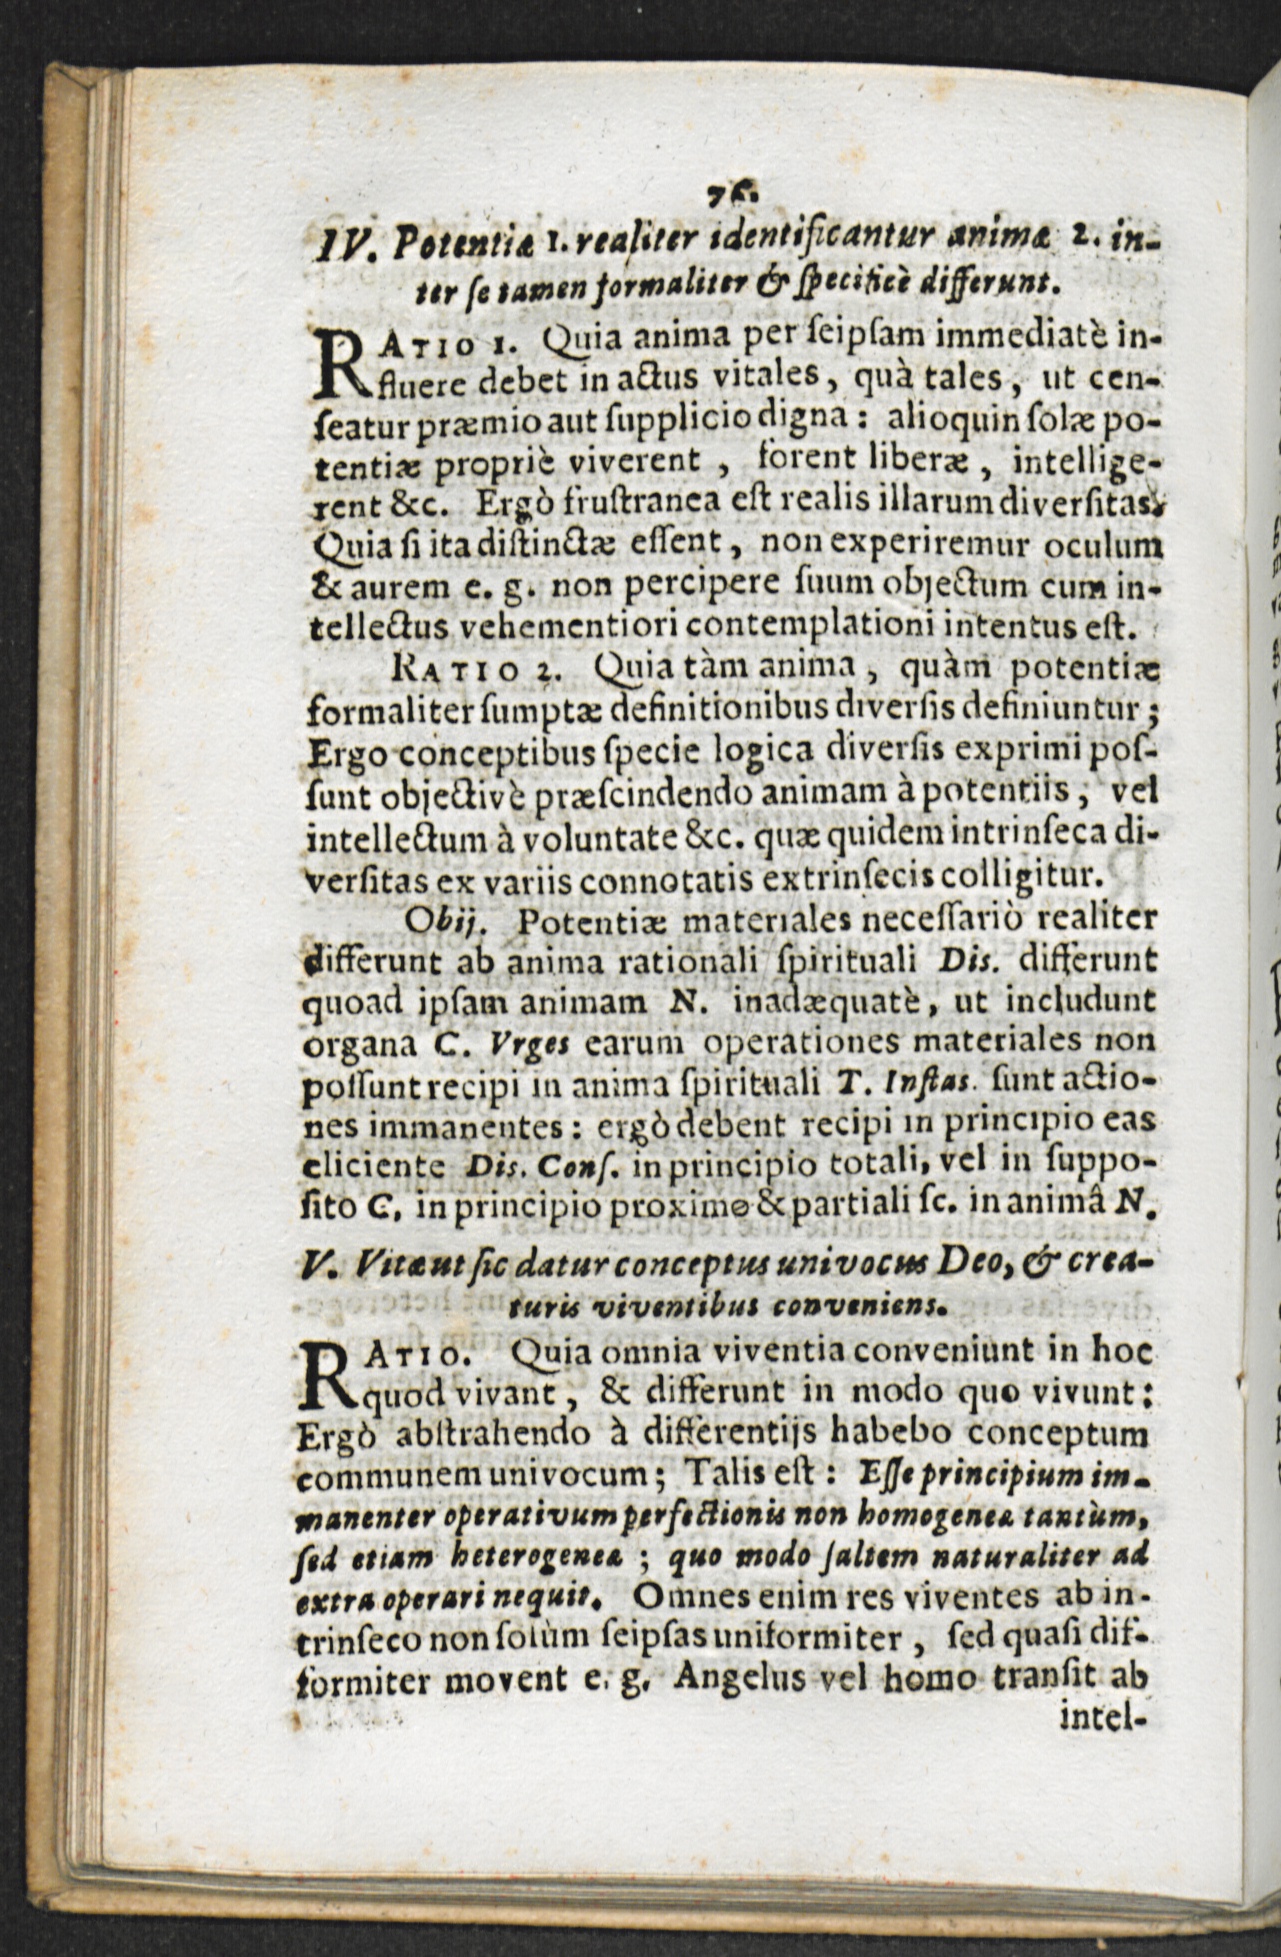 76.
IV. Potentiæ 1. realiter identificantur animæ 2. in-
ter ſe tamen formaliter & ſpecificè differunt.
RATIO 1. Quia anima per ſeipſam immediatè in-
fluere debet in actus vitales, quà tales, ut cen-
ſeatur præmio aut ſupplicio digna: alioquin ſolæ po-
tentiæ propriè viverent, forent liberæ, intellige-
rent &c. Ergò fruſtranea eſt realis illarum diverſitas.
Quia ſi ita diſtinctæ eſſent, non experiremur oculum
& aurem e. g. non percipere ſuum objectum cum in-
tellectus vehementiori contemplationi intentus eſt.
RATIO 2. Quia tàm anima, quàm potentiæ
formaliter ſumptæ definitionibus diverſis definiuntur;
Ergo conceptibus ſpecie logica diverſis exprimi poſ-
ſunt objectivè præſcindendo animam à potentiis, vel
intellectum à voluntate &c. quæ quidem intrinſeca di-
verſitas ex variis connotatis extrinſecis colligitur.
Obij. Potentiæ materiales neceſſariò realiter
differunt ab anima rationali ſpirituali Dis. differunt
quoad ipſam animam N. inadæquatè, ut includunt
organa C. Vrges earum operationes materiales non
poſſunt recipi in anima ſpirituali T. Inſtas. ſunt actio-
nes immanentes: ergò debent recipi in principio eas
eliciente Dis. Conſ. in principio totali, vel in ſuppo-
ſito C. in principio proximo & partiali ſc. in animâ N.
V. Vitæ ut ſic datur conceptus univocus Deo, & crea-
turis viventibus conveniens.
RATIO. Quia omnia viventia conveniunt in hoc
quod vivant, & differunt in modo quo vivunt:
Ergò abſtrahendo à differentijs habebo conceptum
communem univocum; Talis eſt: Eſſe principium im-
manenter operativum perfectionis non homogeneæ tantùm,
ſed etiam heterogeneæ; quo modo ſaltem naturaliter ad
extra operari nequit. Omnes enim res viventes ab in-
trinſeco non ſolùm ſeipſas uniformiter, ſed quaſi dif-
formiter movent e. g. Angelus vel homo tranſit ab
intel-